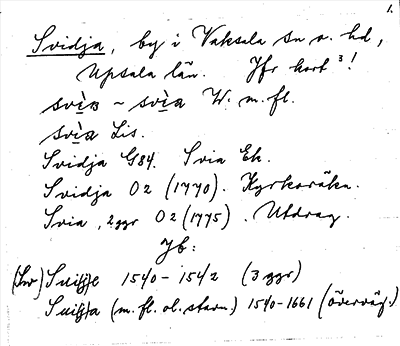 1.
Svidja, by i Vaksala sn o. hd,
Upsala län. Jfr kort 3!
svìa ~ svìa W. m. fl.
svìa Lis.
Svidja G84. Svia Ek.
Svidja O2 (1770). Kyrkoräkn.
Svia, 2 ggr O2 (1775). Utdrag.
Jb:
(Sw) Suidie 1540-1542 (3 ggr)
Suidia (m. fl. ol. stavn.) 1540-1661 (överväg.)